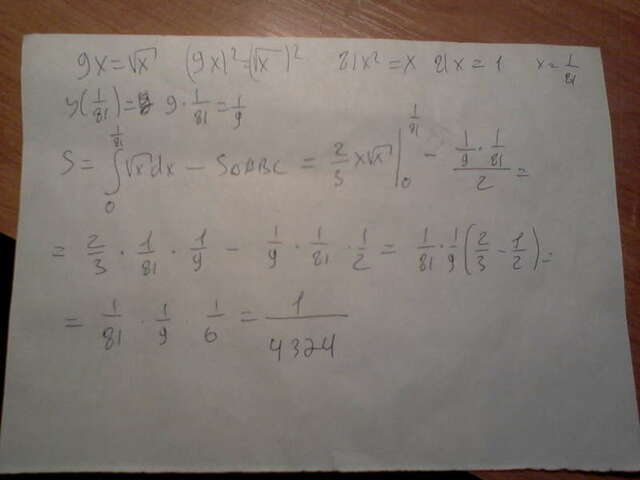 9x=√x (9x)²=(√x)² 81x²=x 81x=1 x=1/81
y(1/81)= 9·1/81=1/9
S= ∫₀^(1/81) √x dx − S△ABC = 2/3 x√x |₀^(1/81) − (1/9·1/81)/2 =
= 2/3 · 1/81 · 1/9 − 1/9 · 1/81 · 1/2 = 1/81·1/9(2/3−1/2)=
= 1/81 · 1/9 · 1/6 = 1/4324